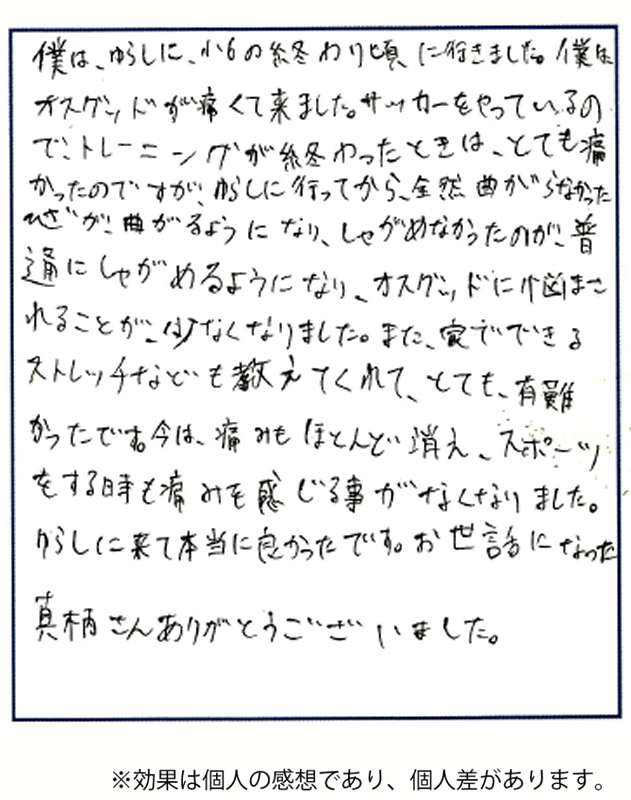 僕は、ゆらしに、小6の終わり頃、に行きました。僕は、
オスグッドが痛くて来ました。サッカーをやっているの
で、トレーニングが終わったときは、とても痛
かったのですが、ゆらしに行ってから、全然曲がらなかった
ひざが、曲がるようになり、しゃがめなかったのが、普
通にしゃがめるようになり、オスグッドに悩まさ
れることが、少なくなりました。また、家でできる
ストレッチなども教えてくれて、とても、有難
かったです。今は、痛みもほとんど消え、スポーツ
をする時も痛みを感じる事がなくなりました。
ゆらしに来て本当に良かったです。お世話になった
真柄さんありがとうございました。
※効果は個人の感想であり、個人差があります。